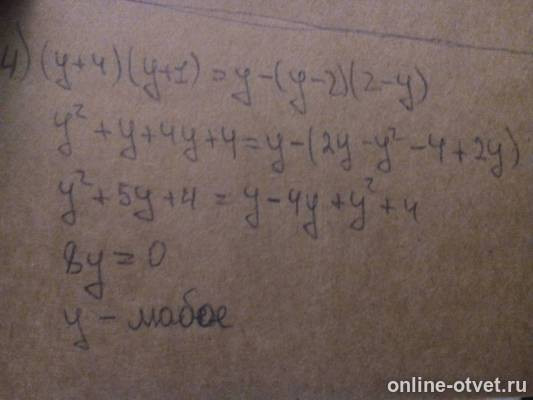 4) (y+4)(y+1)=y-(y-2)(2-y)
y²+y+4y+4=y-(2y-y²-4+2y)
y²+5y+4=y-4y+y²+4
8y=0
y-любое
online-otvet.ru